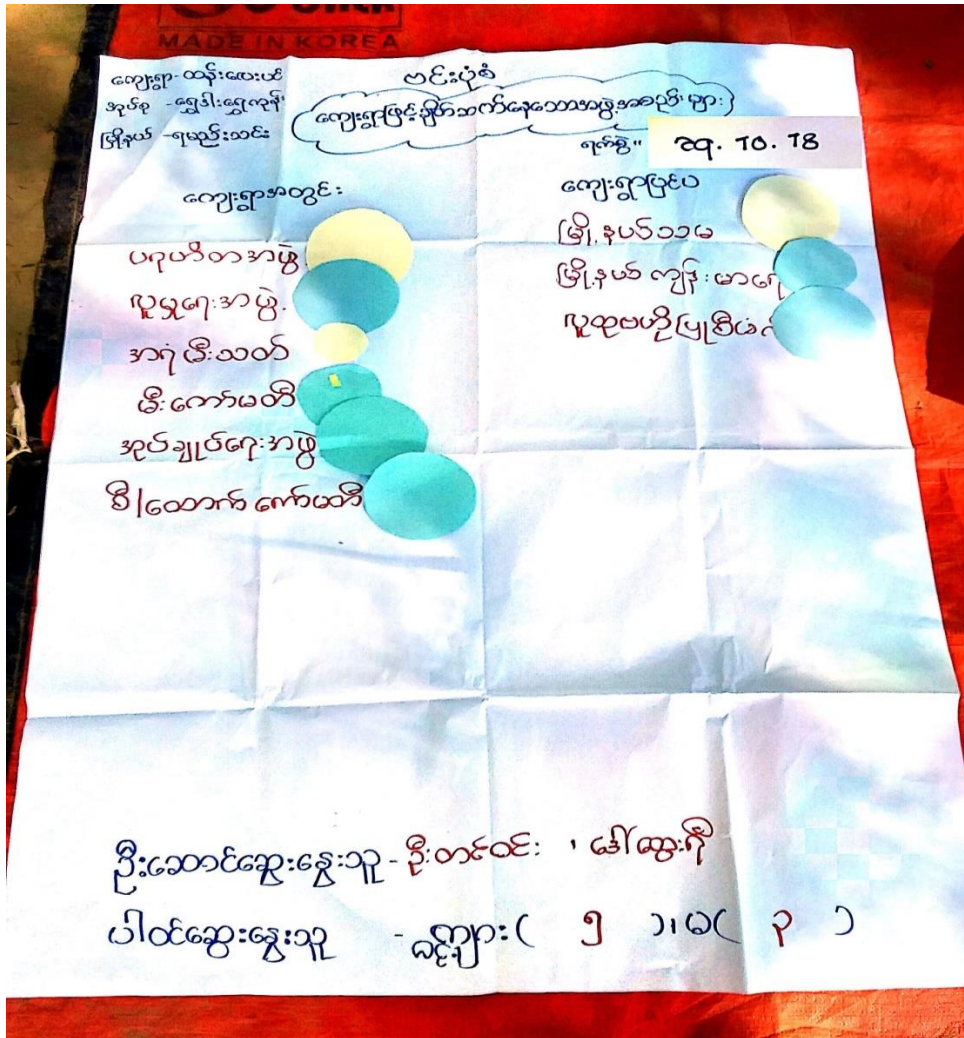 MADE IN KOREA
ကျေးရွာ-ထန်းလေးပင်
အုပ်စု -ရွှေဒါးရွှေကုန်း
မြို့နယ် -ရမည်းသင်း
ဗင်းပုံစံ
ကျေးရွာဖြင့်ချိတ်ဆက်နေသောအဖွဲ့အစည်းများ
ရက်စွဲ။ ၁၅. ၁၀. ၁၈
ကျေးရွာအတွင်း
ပရဟိတအဖွဲ့
လူမှုရေးအဖွဲ့
အရံမီးသတ်
မီးကော်မတီ
အုပ်ချုပ်ရေးအဖွဲ့
စီ/ထောက် ကော်မတီ
ကျေးရွာပြင်ပ
မြို့နယ်သမ
မြို့နယ် ကျန်းမာရေး
လူထုဗဟိုပြုစီမံ
ဦးဆောင်ဆွေးနွေးသူ - ဦးတင်ဝင်း ၊ ဒေါ်ဆွေရီ
ပါဝင်ဆွေးနွေးသူ - ကျား ( ၅ )၊ မ( ၃ )